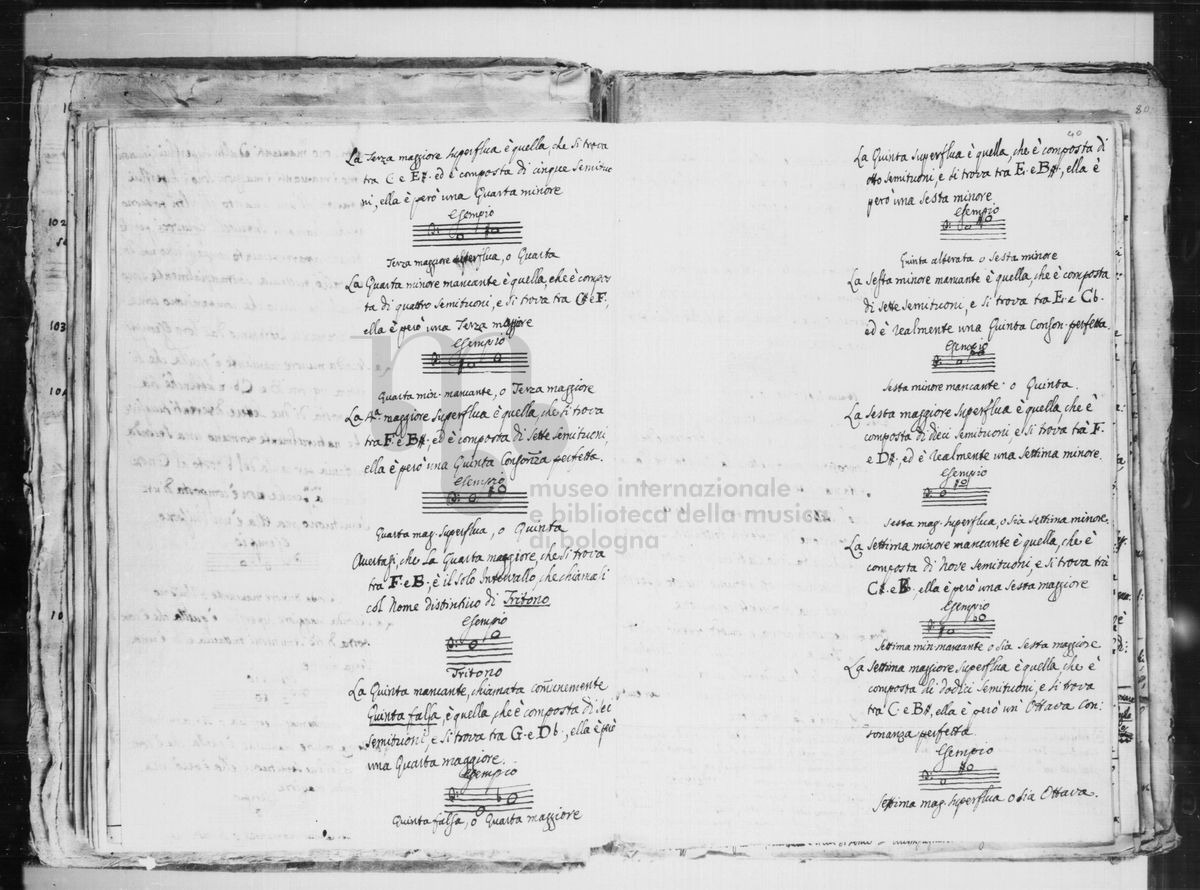 La Terza maggiore superflua è quella, che si trova
tra C. e E#. ed è composta di cinque semituo
ni, ella è però una Quarta minore
Esempio
Terza maggiore superflua, o Quarta
La Quarta minore mancante è quella, che è compos
ta di quattro semituoni, e si trova tra C# e F.
ella è però una Terza maggiore
Esempio
Quarta min. mancante, o Terza maggiore
La 4ª maggiore superflua è quella, che si trova
tra F. e B#. ed è composta di sette semituoni,
ella è però una Quinta Conson̅za perfetta.
Esempio
Quarta mag. superflua, o Quinta
Avertasi, che la Quarta maggiore, che si trova
tra F. e B., è il solo Intervallo, che chiamasi
col nome distintivo di Tritono
Esempio
Tritono
La Quinta mancante, chiamata com̅unemente
Quinta falsa, è quella, che è composta di sei
semituoni, e si trova tra G. e Db., ella è però
una Quarta maggiore.
Esempio
Quinta falsa, o Quarta maggiore
80
40
La Quinta superflua è quella, che è composta di
otto semituoni, e si trova tra E. e B#., ella è
però una sesta minore
Esempio
Quinta alterata o sesta minore
La Sesta minore mancante è quella, che è composta
di sette semituoni, e si trova tra E. e Cb.
ed è realmente una Quinta Conson. perfetta.
Esempio
Sesta minore mancante. o Quinta.
La sesta maggiore superflua è quella, che è
composta di dieci semituoni, e si trova trà F.
e D#, ed è realmente una settima minore.
Esempio
Sesta mag. superflua, o sia settima minore.
La settima minore mancante è quella, che è
composta di nove semituoni, e si trova trà
C#. e B., ella è però una sesta maggiore
Esempio
Settima min. mancante o sia sesta maggiore
La settima maggiore superflua è quella che è
composta di dodici semituoni, e si trova
tra C. e B#, ella è però un' Ottava con:
sonanza perfetta
Esempio
Settima mag. superflua o sia Ottava.
102
103
museo internazionale
e biblioteca della musica
di bologna